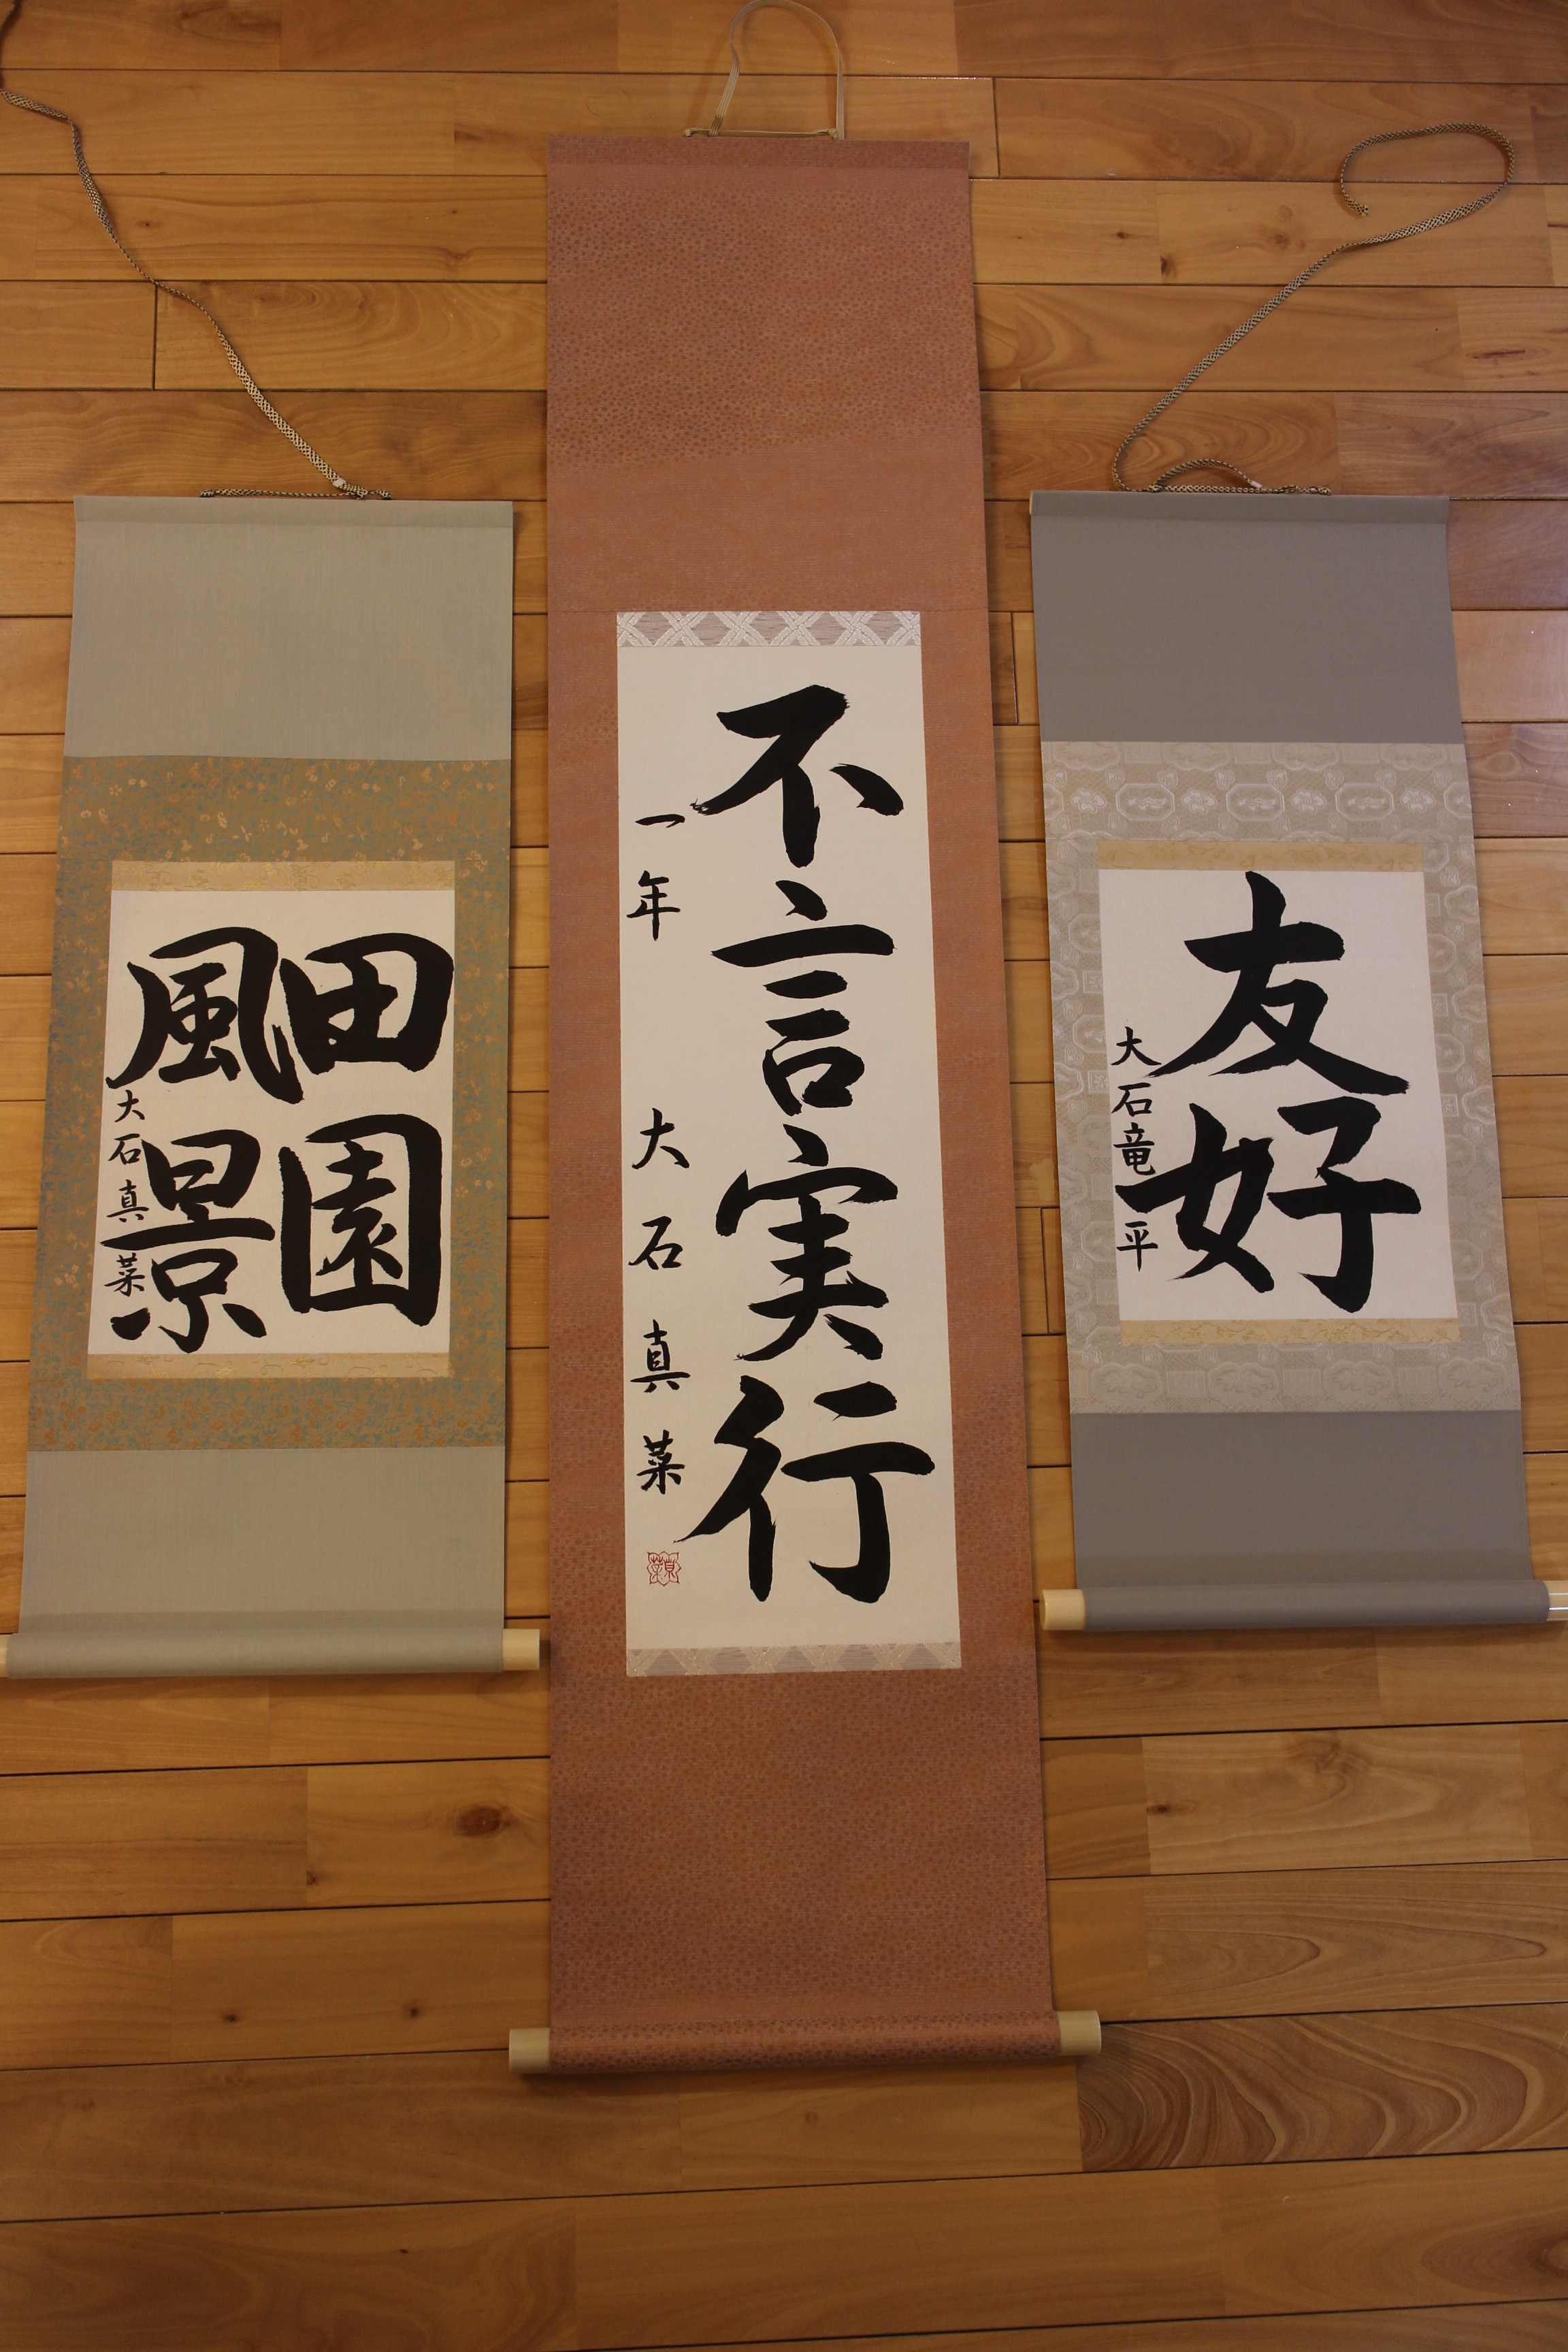 田園
風景
大石真菜
不言実行
一年 大石真菜
真菜
友好
大石竜平